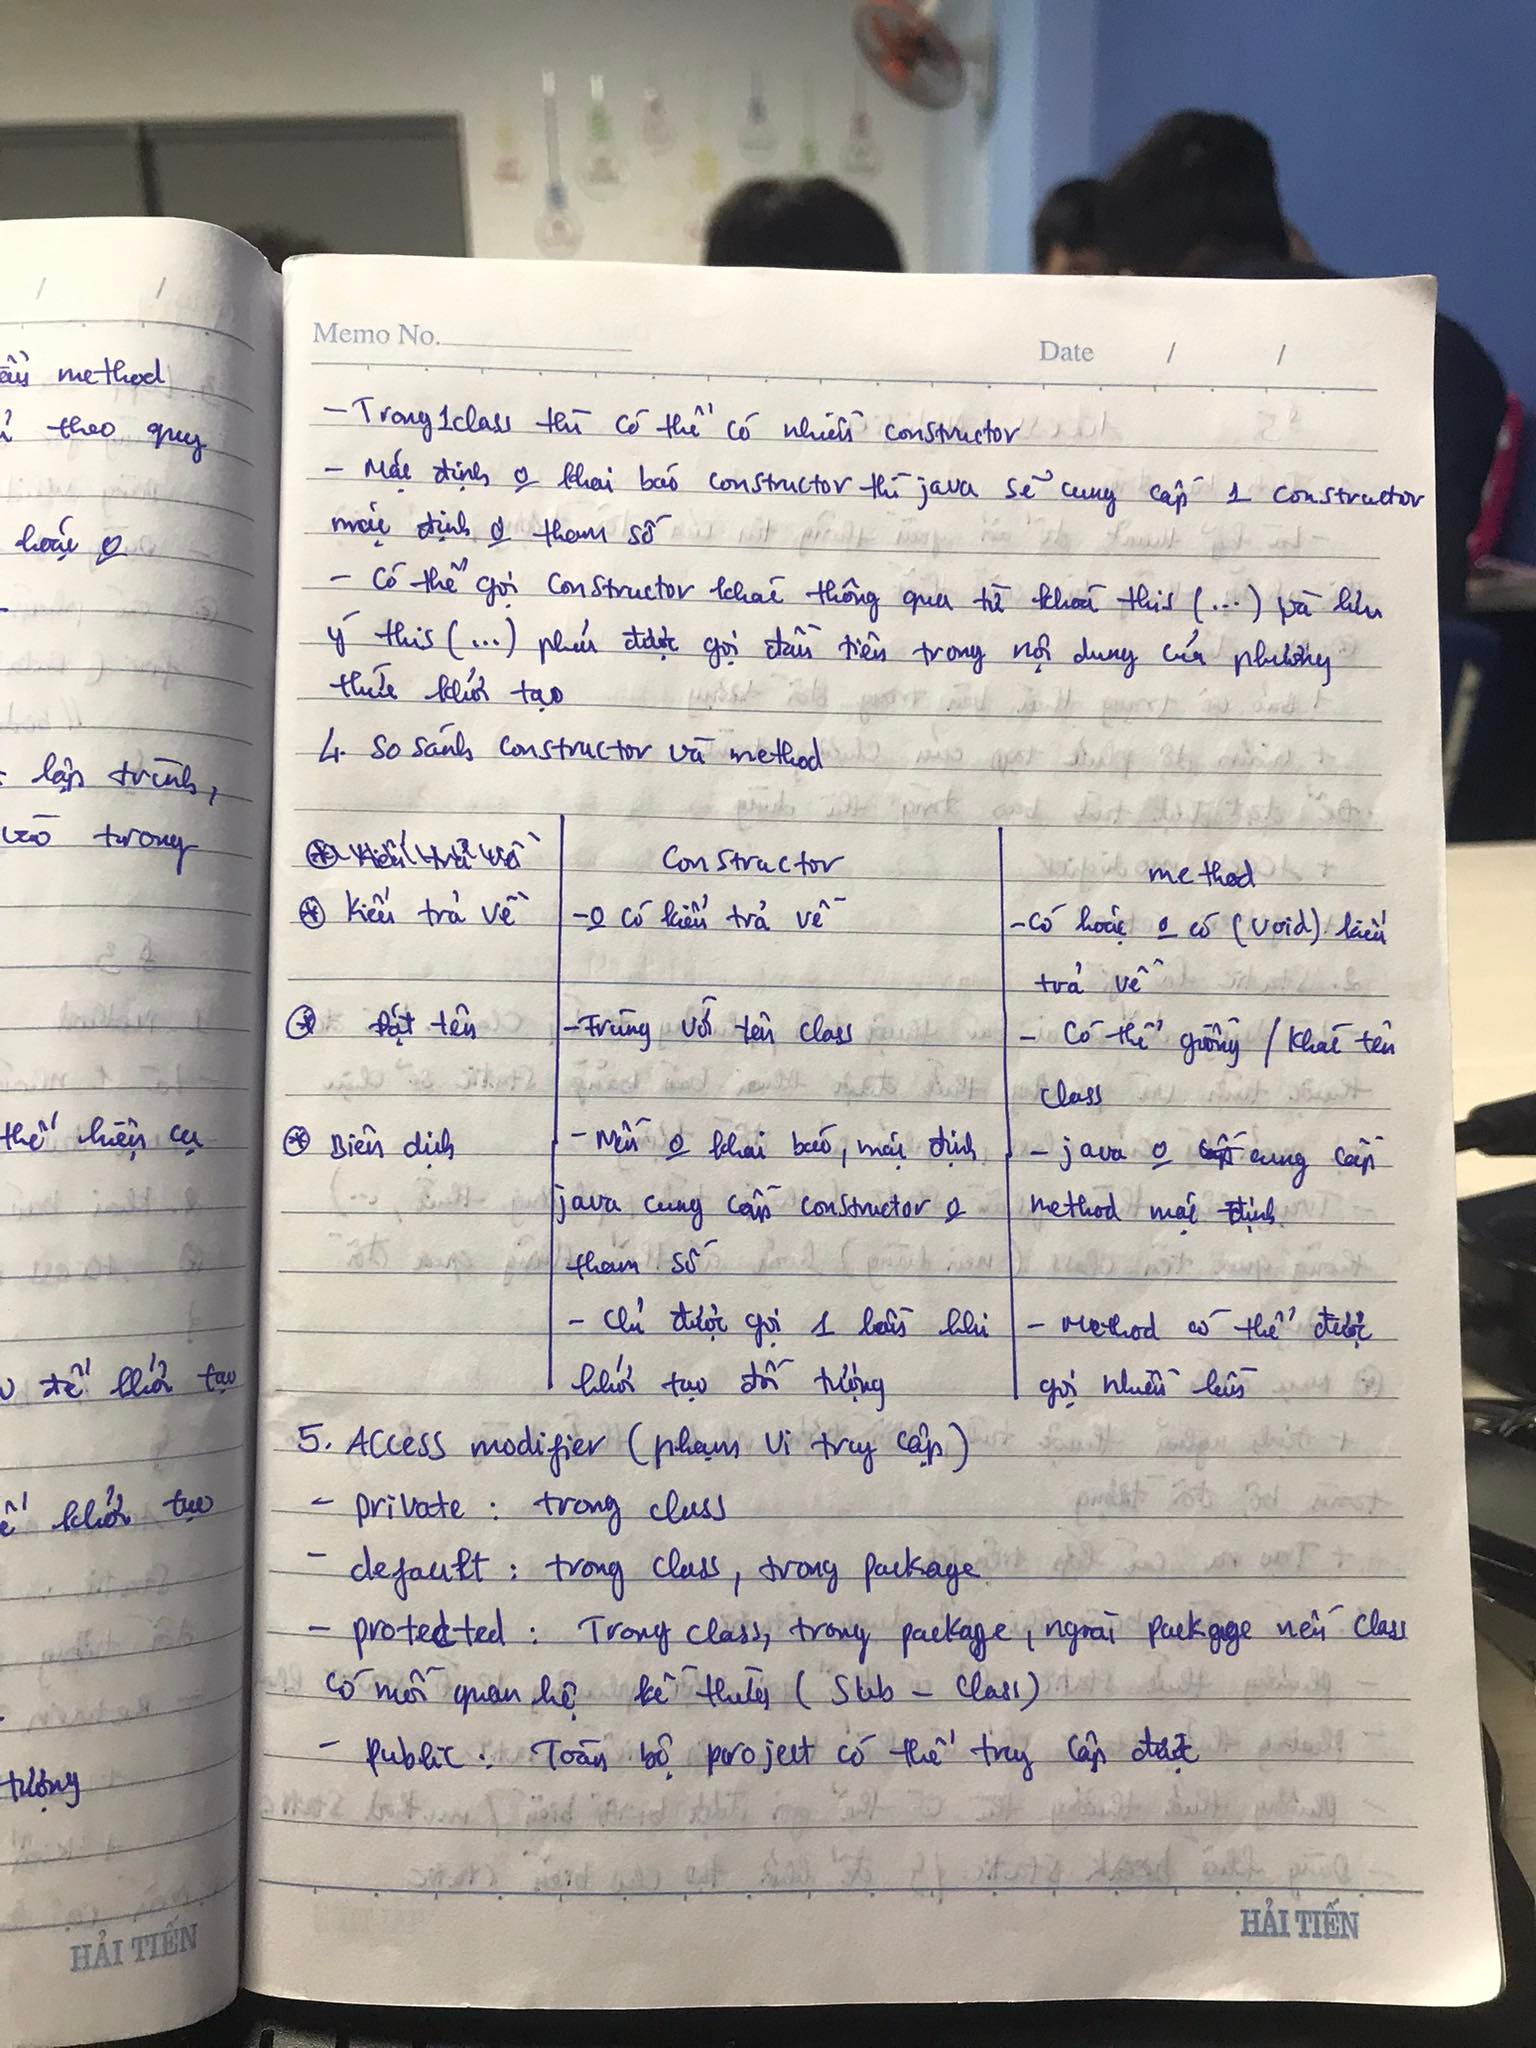 ẩn method
theo quy
hoặc o
lập trình,
vào trong
thể hiện cụ
để khởi tạo
khởi tạo
tượng
HẢI TIẾN
Memo No.
Date / /
- Trong 1 class thì có thể có nhiều constructor
- Mặc định o khai báo constructor thì java sẽ cung cấp 1 constructor
mặc định o tham số
- Có thể gọi constructor khác thông qua từ khoá this (...) và lưu
ý this (...) phải được gọi đầu tiên trong nội dung của phương
thức khởi tạo
4. So sánh constructor và method
Kiểu trả về Constructor method
* Kiểu trả về - o có kiểu trả về - Có hoặc o có (void) kiểu
trả về
* Đặt tên - Trùng với tên class - Có thể giống / khác tên
class
* Biên dịch - Nếu o khai báo, mặc định - java o cung cấp
java cung cấp constructor o method mặc định
tham số
- Chỉ được gọi 1 lần khi - Method có thể được
khởi tạo đối tượng gọi nhiều lần
5. Access modifier (phạm vi truy cập)
- private : trong class
- default : trong class, trong package
- protected : Trong class, trong package, ngoài package nếu class
có mối quan hệ kế thừa (Sub - Class)
- Public : Toàn bộ project có thể truy cập được
HẢI TIẾN